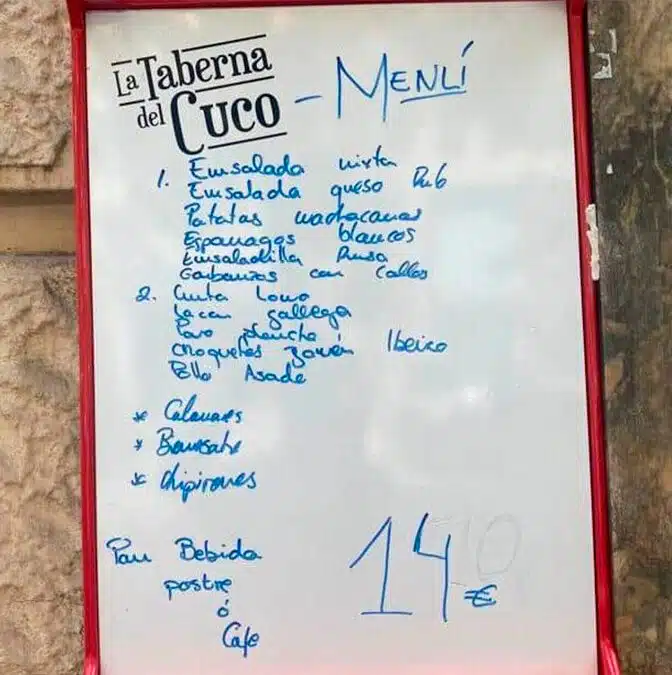 La Taberna
del Cuco - MENÚ
1. Ensalada mixta
Ensalada queso Rub
Patatas machacanas
Esparragos blancos
Ensaladilla Rusa
Garbanzos con Callos
2. Cinta Lomo
Lacon gallega
Pavo plancha
croquetas jamón Ibeico
Pollo Asade
* Calamares
*
* Chipirones
Pan Bebida
postre
ó
Cafe
14 €